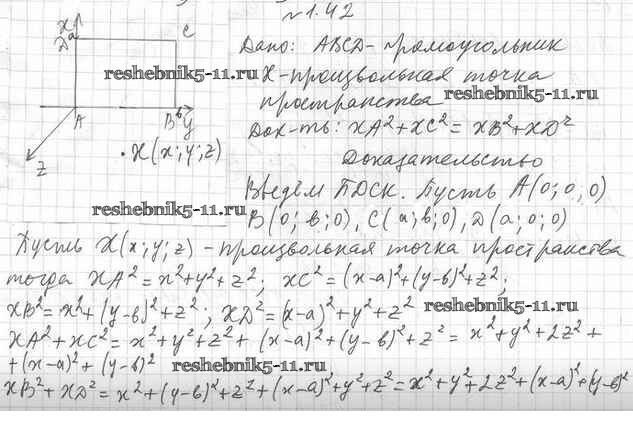 №1.42
x
D a
C
Дано: ABCD-прямоугольник
reshebnik5-11.ru
X-произвольная точка
reshebnik5-11.ru
пространства
A
B в y
Док-ть: XA²+XC²=XB²+XD²
z
·X(x;y;z)
Доказательство
Введём ПДСК. Пусть A(0;0;0)
reshebnik5-11.ru
B(0;в;0), C(a;в;0), D(a;0;0)
Пусть X(x;y;z)-произвольная точка пространства
тогда XA²=x²+y²+z²; XC²=(x-a)²+(y-в)²+z²;
XB²=x²+(y-в)²+z²; XD²=(x-a)²+y²+z²
reshebnik5-11.ru
XA²+XC²=x²+y²+z²+(x-a)²+(y-в)²+z²=x²+y²+2z²+
+(x-a)²+(y-в)²
reshebnik5-11.ru
XB²+XD²=x²+(y-в)²+z²+(x-a)²+y²+z²=x²+y²+2z²+(x-a)²+(y-в)²